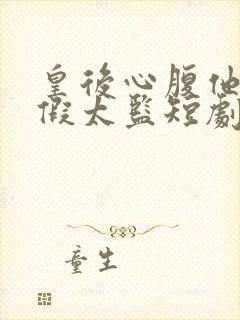 皇後心腹他
假太監短劇
童生